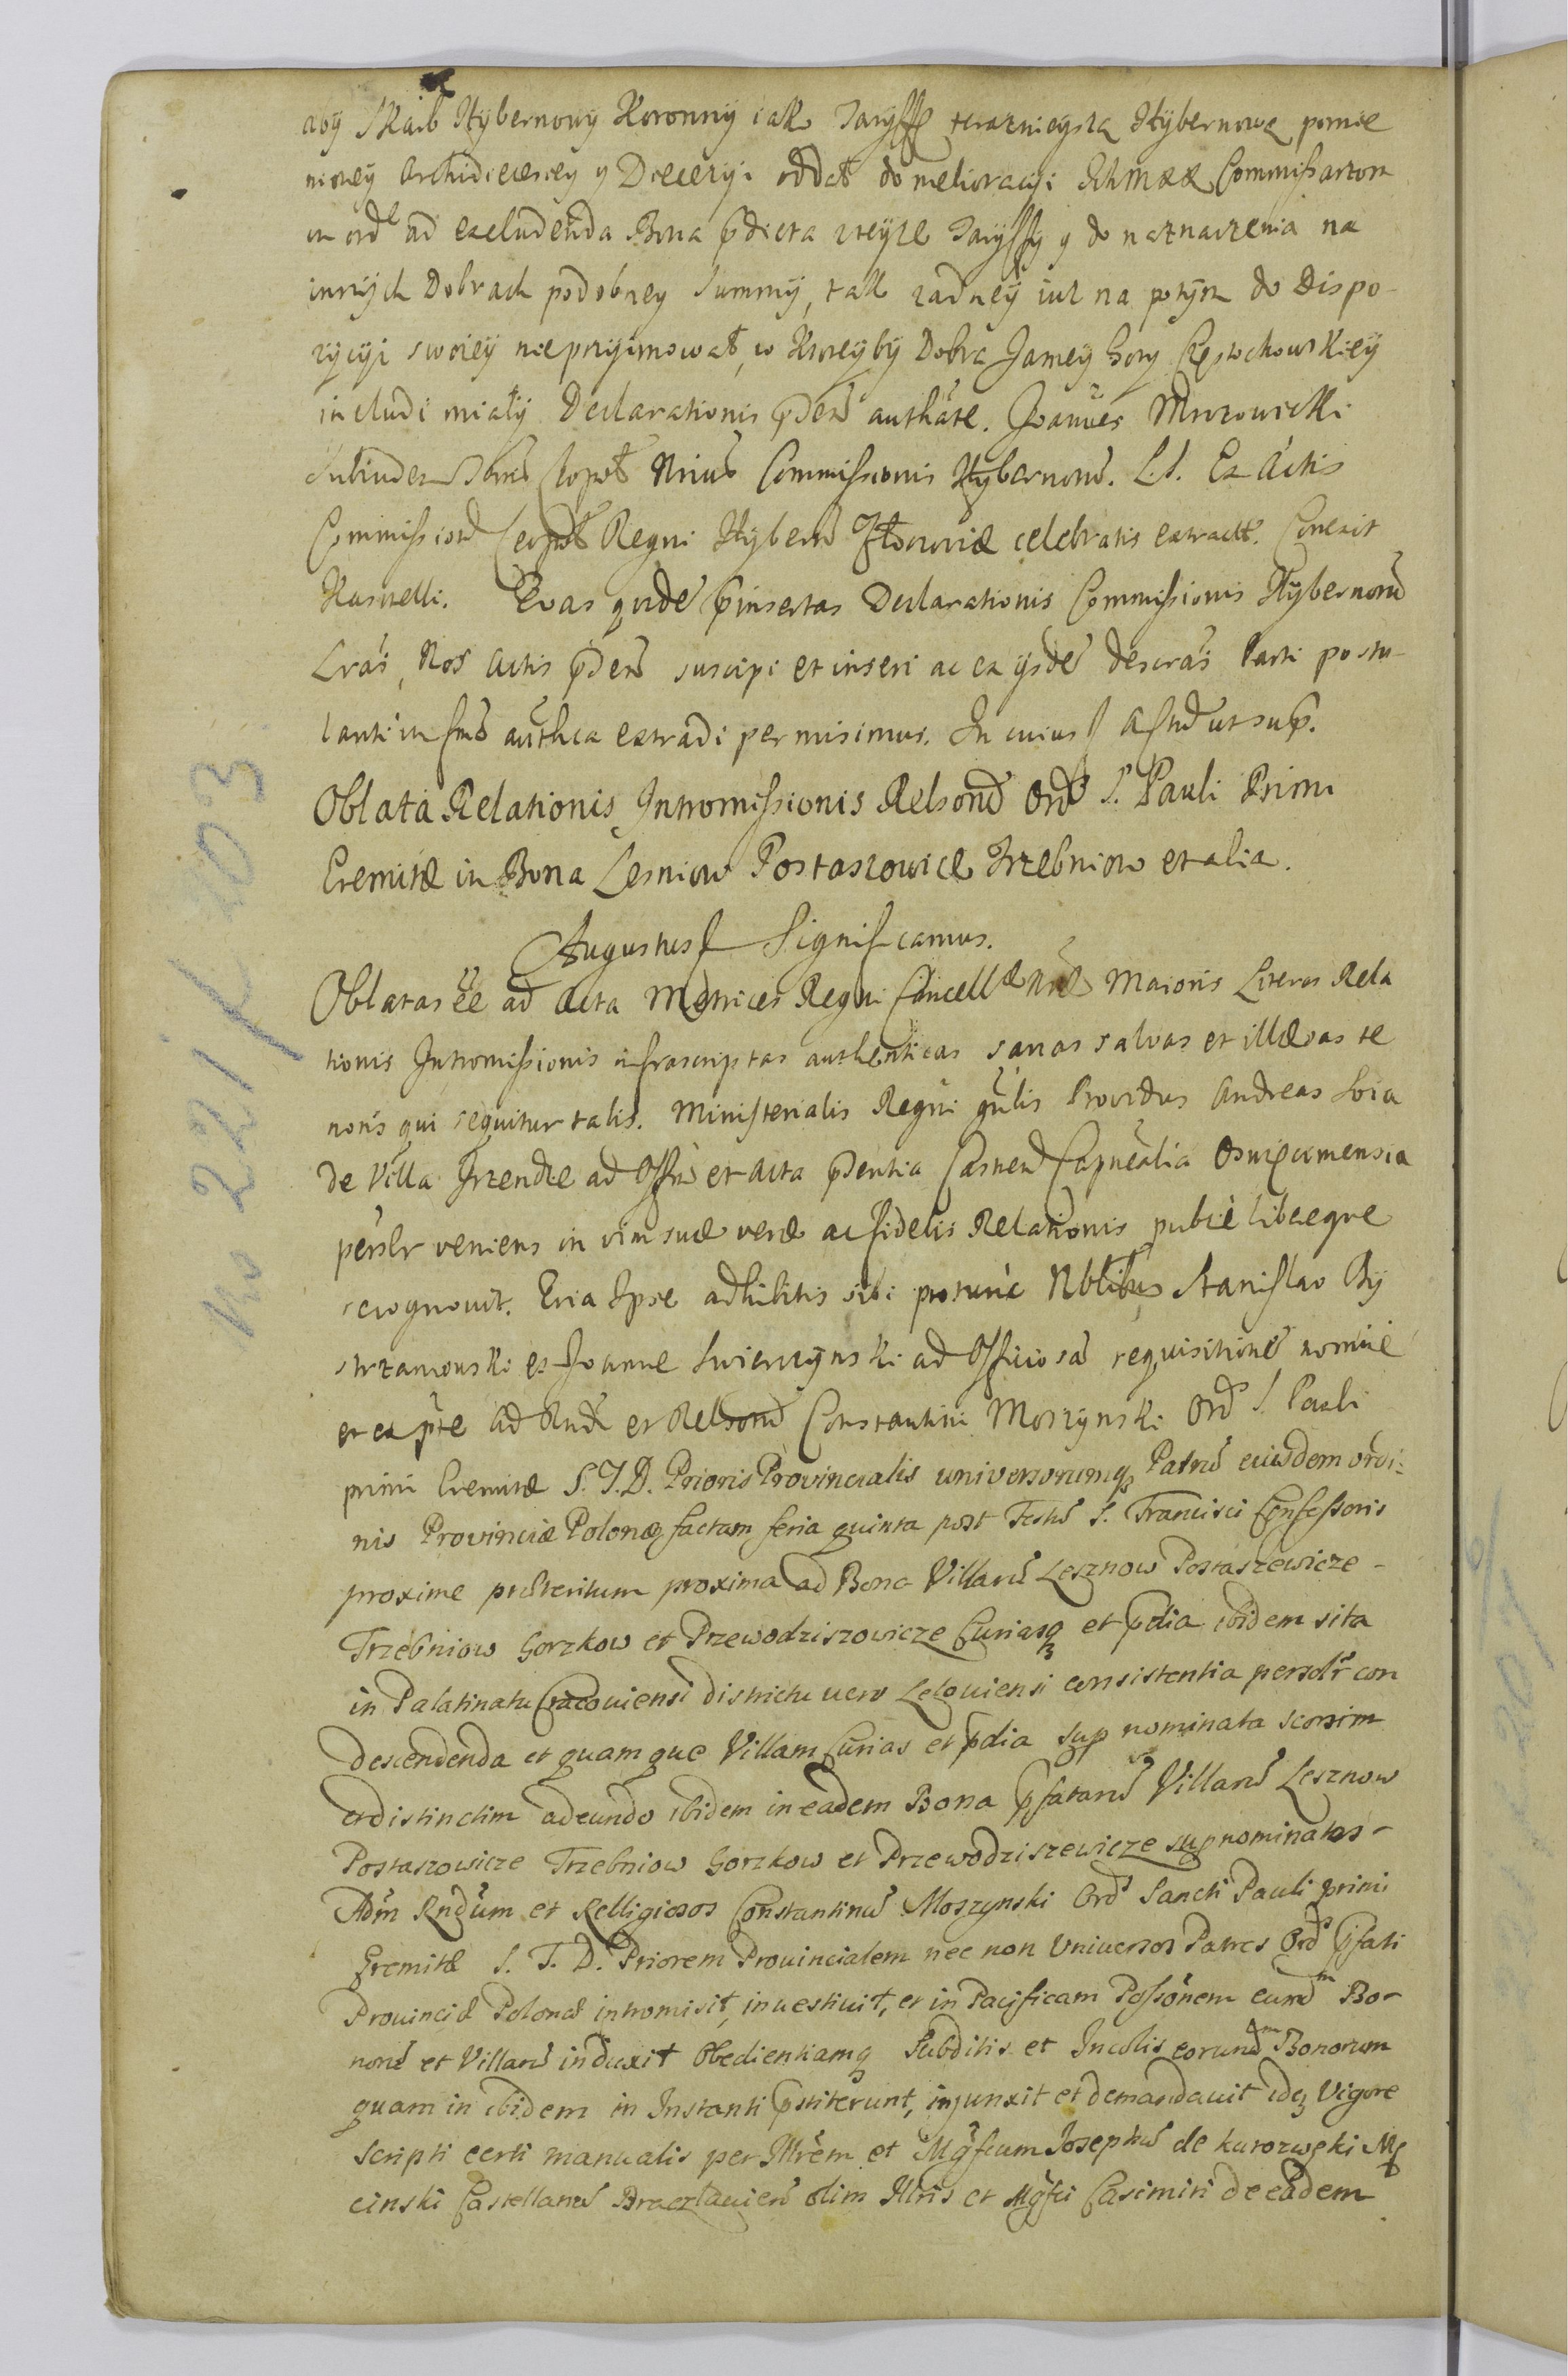 aby Skarb Hybernowy Koronny iak Taryffę teraznieyszą Hybernową pomie
nioney Archidiecezyey y Diecezyi oddał do melioracyi Ichmææ Commissarzom
in ord ad excludenda Bona pdicta zteyze Taryffy y do naznaczenia na
innych Dobrach podobney Summy, tak zadney iuz na potym do Dispo-
zycyi swoiey nieprzyimował, w ktoreyby Dobra Jasney Gory Częstochowskiey
includi miały Declarationis pdēn authāte. Joannes Mrozowicki
Subiudex Commissionis Hybernorū. L.S. Ex Actis
Commission Regni Hybern celebratis extractt. Correxit
Kasnelli. Quas quidē pinsertas Declarationis Commissionis Hybernorū
Lrās, Nos Actis pdēn suscipi et inseri ac ex ijsdē descrās Parti postu-
lanti in authca extradi permisimus. In cuius ut sup.
Oblata Relationis Intromissionis Relsorū Ord S. Pauli Primi
Eremitæ in Bona Lesniow Postaszowice Trzebniow et alia.
Augustus Significamus.
Oblatas ēē ad Acta Metrices Regni Cancellæ Maioris Literas Rela
tionis Intromissionis infrascriptas authenticas sanas salvas et illæsas te
noris qui sequitur talis. Ministerialis Regni gnlis Providus Andreas Soia
de Villa ad Offm et Acta pdentia Castren Capnealia Oswięcimensia
persōlr veniens in vim suæ veræ ac fidelis Relationis publicè libereque
recognovit. Quia Ipse adhibitis sibi pro tunc Nblibus Stanislao By
strzanowski et Joanne Swierczynski ad Officiosā requisitionē nomine
et ex pte Adm Rndi et Relsorū Constantini Moszynski Ord S. Pauli
primi Eremitæ S.T.D. Prioris Provincialis universorumq Patrū eiusdem ordi:
nis Provinciæ Polonæ factam feria quinta post Festū S. Francisci Confessoris
proxime præteritum proxima ad Bona Villarū Lesznow Postaszewicze -
Trzebniow Gorzkow et Przewodziszowicze Curiasq et pdia ibidem sita
in Palatinatu Cracoviensi districtu vero Leloviensi consistentia persolr con
descendenda et quamque Villam Curias et pdia sup nominata seorsim
et distinctim adeundo ibidem in eadem Bona pfatarū Villarū Lesznow
Postaszowicze Trzebniow Gorzkow et Przewodziszewicze sup nominatos -
Adm Rndum et Relligiosos Constantinū Moszynski Ord Sancti Pauli primi
Eremitæ S. T. D. Priorem Provincialem nec non Universos Patres Ord pfati
Provinciæ Polonæ intromisit, investivit, et in Pacificam Possonem eund Bo-
norū et Villarū induxit Obedientiamq Subditis et Incolis eorund Bonorum
quam in ibidem in Instanti pstiterunt, injunxit et demandavit idq Vigore
scripti certi manualis per Illrem et Mgfcum Josephū de Kurozwęki Mę
cinski Castellanū Braczlavien olim Illris et Mgfci Casimiri de eadem
No 221 k 203